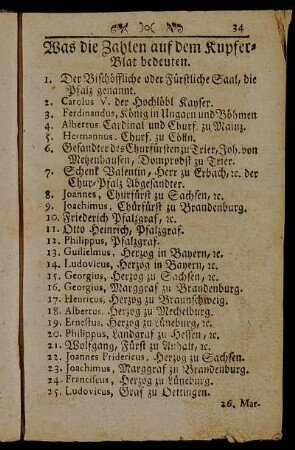 34
Was die Zahlen auf dem Kupfer-
Blat bedeuten.
1. Der Bischöffliche oder Fürstliche Saal, die
Pfalz genannt.
2. Carolus V. der Hochlöbl Kayser.
3. Ferdinandus, König in Ungarn und Böhmen
4. Albertus Cardinal und Churf. zu Mainz.
5. Hermannus Churf. zu Cölln.
6. Gesandter des Churfürsten zu Trier, Joh. von
Metzenhausen, Domprobst zu Trier.
7. Schenk Valentin, Herr zu Erbach, ꝛc. der
Chur-Pfalz Abgesandter.
8. Joannes, Churfürst zu Sachsen, ꝛc.
9. Joachimus, Churfürst zu Brandenburg.
10. Friederich Pfalzgraf, ꝛc.
11. Otto Heinrich, Pfalzgraf.
12. Philippus, Pfalzgraf.
13. Guilielmus, Herzog in Bayern, ꝛc.
14. Ludovicus, Herzog in Bayern, ꝛc.
15. Georgius, Herzog zu Sachsen, ꝛc.
16. Georgius, Marggraf zu Brandenburg.
17. Henricus, Herzog zu Braunschweig.
18. Albertus, Herzog zu Mechelburg.
19. Ernestus, Herzog zu Lüneburg, ꝛc.
20. Philippus, Landgraf zu Hessen, ꝛc.
21. Wolfgang, Fürst zu Anhalt, ꝛc.
22. Joannes Fridericus, Herzog zu Sachsen.
23. Joachimus, Marggraf zu Brandenburg.
24. Franciscus, Herzog zu Lüneburg.
25. Ludovicus, Graf zu Oettingen.
26. Mar-